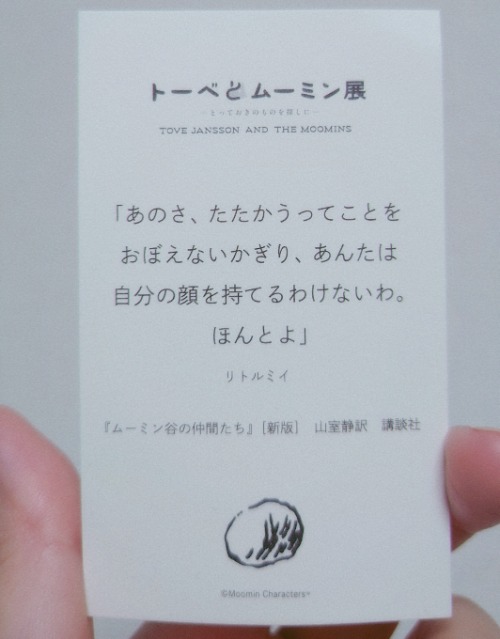 トーベとムーミン展
～とっておきのものを探しに～
TOVE JANSSON AND THE MOOMINS
「あのさ、たたかうってことを
おぼえないかぎり、あんたは
自分の顔を持てるわけないわ。
ほんとよ」
リトルミイ
『ムーミン谷の仲間たち』［新版］　山室静訳　講談社
©Moomin Characters™